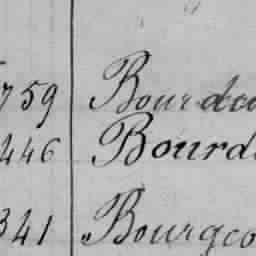 759 Bourdea
446 Bourde
341 „Bourgeo